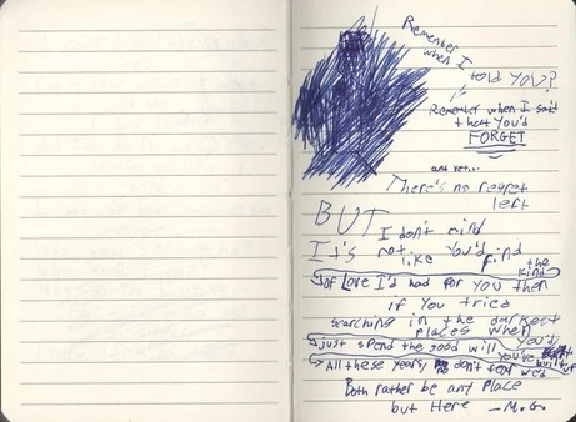 Remember
when I
told you?
Remember when I said
that You'd
FORGET
and yet...
There's no regret
left
BUT I don't mind
It's not like You'd find
the kind
of Love I'd had for you then
if You tried
searching in the darkest
places when
You'd
just spend the good will
You've built up
All these years, don't feel we'd
Both rather be any place
but Here - M.G.